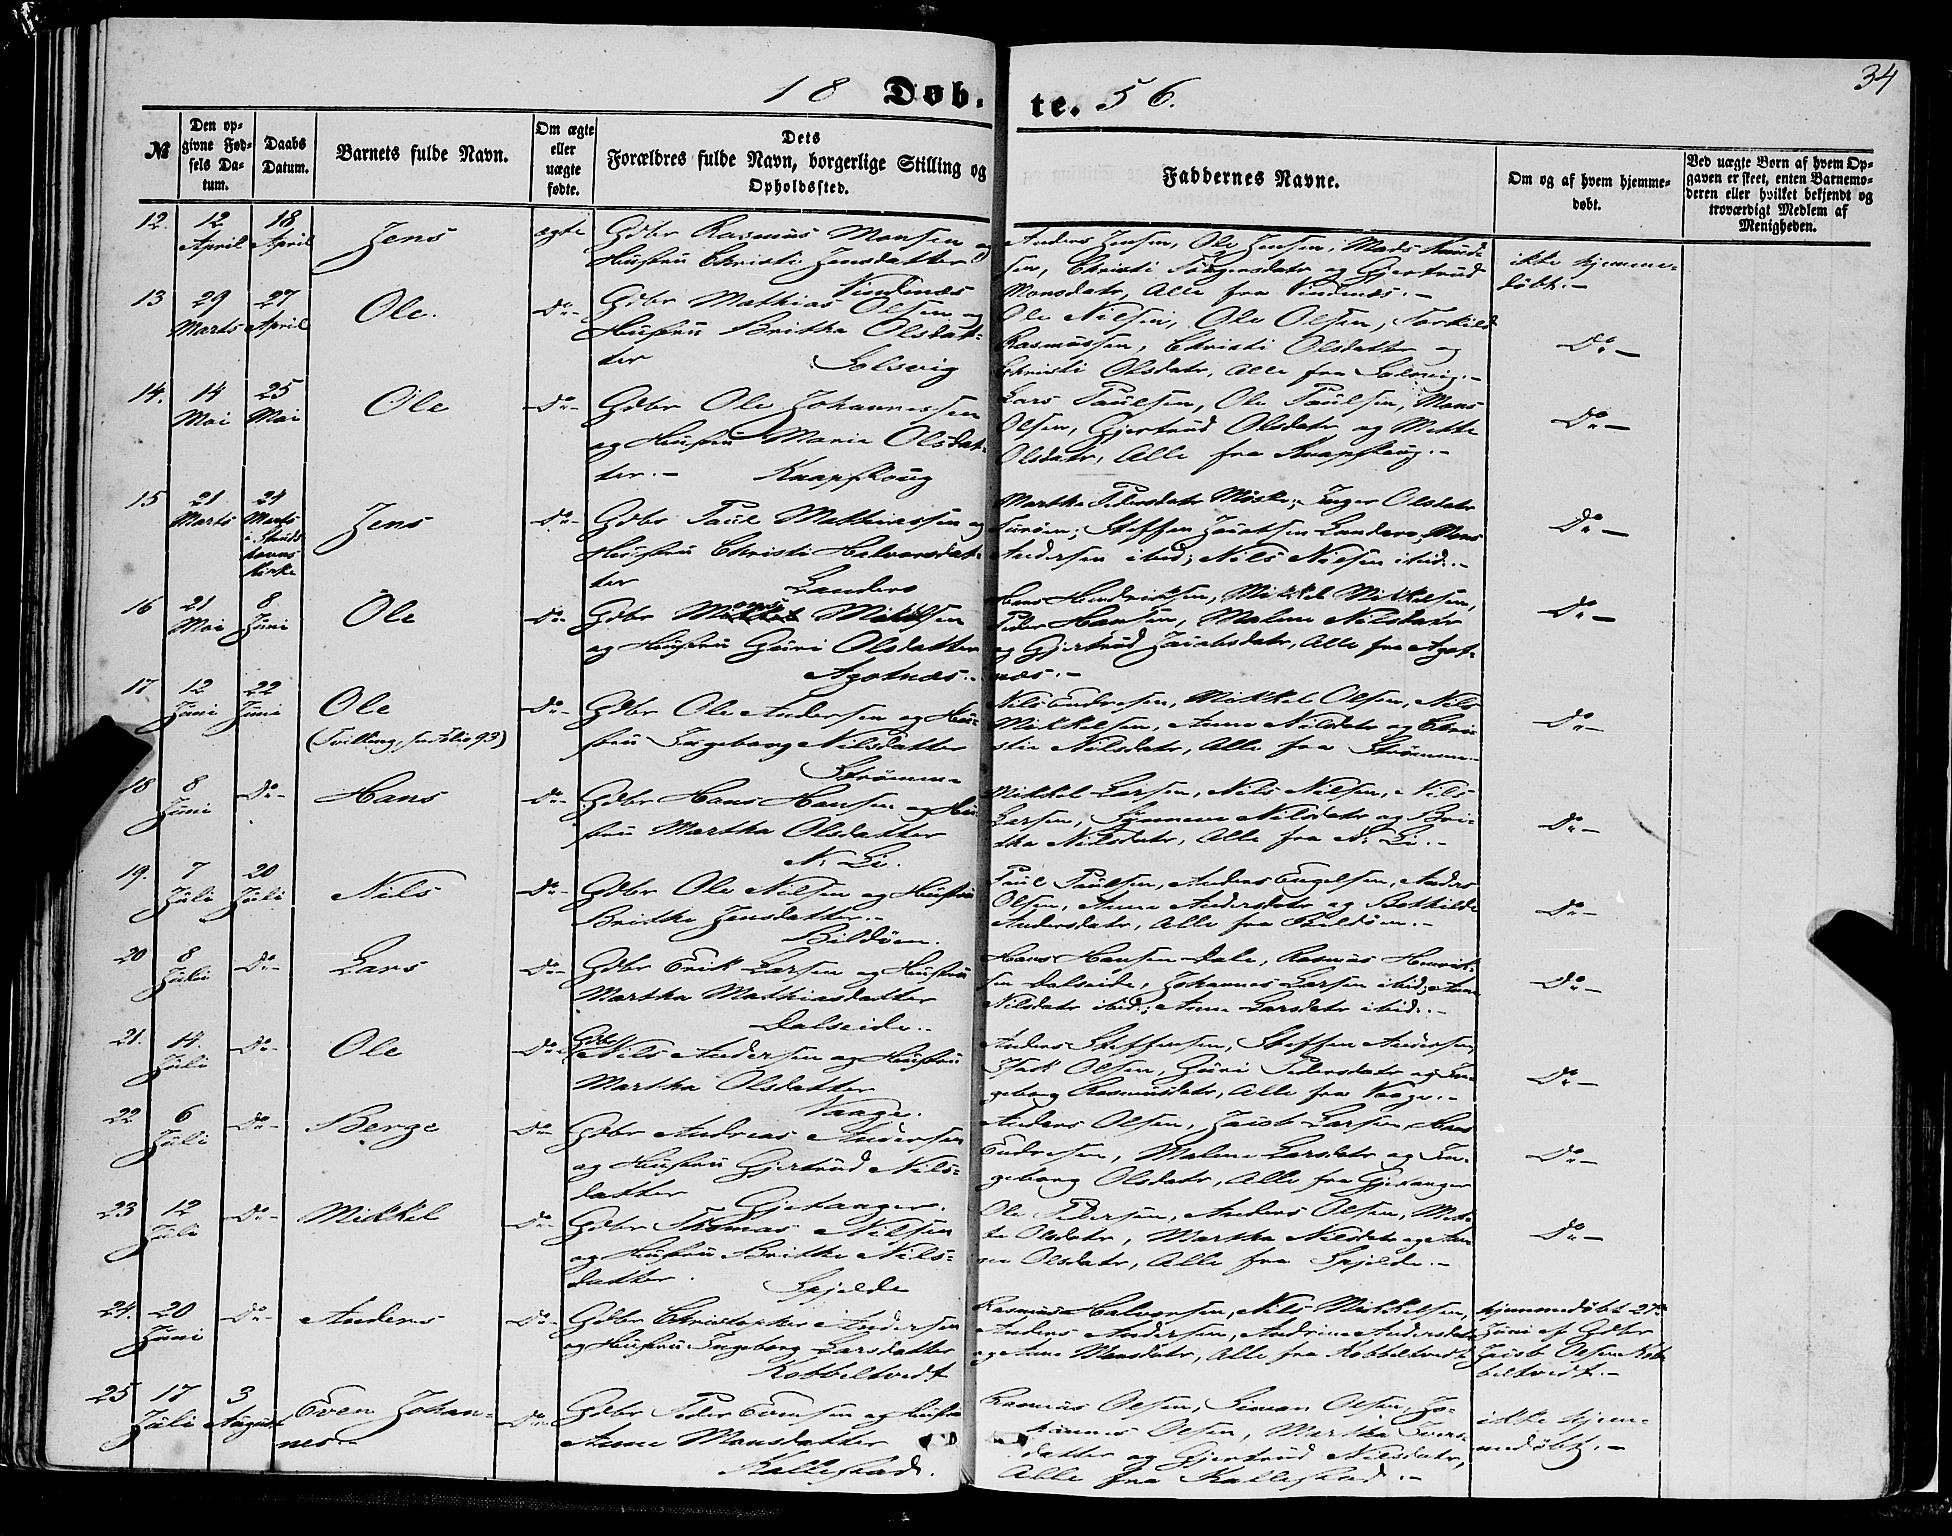 34
18 Døb- te. 56.
№
Den opgivne Fødsels Datum.
Daabs Datum.
Barnets fulde Navn.
Om ægte eller uægte fødte.
Dets Forældres fulde Navn, borgerlige Stilling og Opholdssted.
Faddernes Navne.
Om og af hvem hjemmedøbt.
Ved uægte Børn af hvem Opgaven er skeet, enten Barnemoderen eller hvilket bekjendt og troværdigt Medlem af Menigheden.
12. 12 April 18 April Jens ægte
Gdbr Rasmus Monsen og
Hustru Christi Jensdatter
Vindenæs
Anders Jensen, Ole Jensen, Mads Knud-
sen, Christi Torgersdatr og Gjertrud
Monsdatr, Alle fra Vindenæs.-
ikke hjemme-
døbt.-
13 29 Marts 27 April Ole. Do-
Gdbr Mathias Olsen og
Hustru Brithe Olsdat-
ter Solsvig
Ole Nilsen, Ole Olsen, Torkild
Rasmussen, Christi Olsdatter og
Christi Olsdatr, Alle fra Solsvig.-
Do-
14. 14 Mai 25 Mai Ole Do-
Gdbr Ole Johannessen
og Hustru Marie Olsdat-
ter.- Knapskoug
Lars Paulsen, Ole Paulsen, Mons
Olsen, Gjertrud Olsdatr og Mette
Olsdatr, Alle fra Knapskoug.-
Do-
15 21 Marts 24 Marts i Sunds havns Kirke Jens Do-
Gdbr Paul Mathiassen og
Hustru Christi Halvorsdat-
ter Landero
Martha Pedersdatr Møske; Inger Olsdatr
Turøen; Steffen Landero, Mons
Andersen ibid; Nils Nilsen ibid.-
Do-
16 21 Mai 8 Juni Ole Do-
Gdbr Mons Mikkelsen
og Hustru Guri Olsdatter
Agotnæs.-
Hans Hendriksen, Mikkel Mikkelsen,
Peder Hansen, Malene Nilsdatr
og Gjertrud Jacobsdatr, Alle fra Agot-
næs.-
Do-
17 12 Juni 22 Juni Ole Do-
(Tvilling, see Folio 93)
Gdbr Ole Andersen og Hu-
stru Ingeborg Nilsdatter
Strømme-
Nils Endresen, Mikkel Olsen, Nils
Mikkelsen, Anne Nilsdatr og Chri-
stie Nilsdatr, Alle fra Strømme-
Do-
18 8 Juni Do- Hans Do-
Gdbr Hans Hansen og Hu-
stru Martha Olsdatter
N. Li.
Mikkel Larsen, Nils Nilsen, Nils
Larsen, Synneve Nilsdatr og Bri-
tha Nilsdatr, Alle fra N. Li.-
Do-
19. 7 Juli 20 Juli Nils Do-
Gdbr Ole Nilsen og Hustru
Brithe Jensdatter.-
Bildøen.
Paul Paulsen, Anders Engelsen, Anders
Olsen, Anne Andersdatr og Bothilde
Andersdatr, Alle fra Bildøen.-
Do-
20 8 Juli Do- Lars Do-
Gdbr Erik Larsen og Hustru
Martha Mathiasdatter
Dalseide.-
Hans Hansen Dale, Rasmus Henrik-
sen Dalseide, Johannes Larsen ibid; Anne
Nilsdatr ibid; Anne Larsdatr ibid.-
Do-
21. 14. Juli Do- Ole Do-
Gdbr
Nils Andersen og Hustru
Martha Olsdatter
Vaage.
Anders Steffensen, Steffen Andersen,
Isak Olsen, Guri Pedersdatr og In-
geborg Rasmusdatr, Alle fra Vaage.-
Do-
22 6 Juli Do- Berge Do-
Gdbr Andreas Andersen
og Hustru Gjertrud Nils-
datter Gjetanger.
Anders Olsen, Jacob Larsen, Hans
Endresen, Malene Larsdatr og In-
geborg Olsdatr, Alle fra Gjetanger
Do-
23 12 Juli Do- Mikkel Do-
Gdbr Thomas Nilsen
og Hustru Brithe Nils-
datter. Spjelde
Ole Pedersen, Anders Olsen, Met-
te Olsdatr, Martha Nilsdatr og
Olsdatr, Alle fra Spjelde.-
Do-
24. 20 Juni Do- Anders Do-
Gdbr Christopher Andersen
og Hustru Ingeborg Larsdatter
Kobbeltvedt
Rasmus Halvorsen, Nils Mikkelsen,
Anders Andersen, Andrine Andersdatr
og Anne Monsdatr, Alle fra Kobbeltvedt
hjemmedøbt 27de
Juni af Gdbr
Jacob Olsen Kob-
beltvedt.-
25 17 Juli 3 August Even Johan-
nes.- Do-
Gdbr Peder Evensen og Hustru
Anne Monsdatter
Kallestad.
Rasmus Olsen, Simon Olsen, Jo-
hannes Olsen, Martha Ivers-
datter og Gjertrud Nilsdatr,
Alle fra Kallestad.-
ikke hjem-
medøbt.-